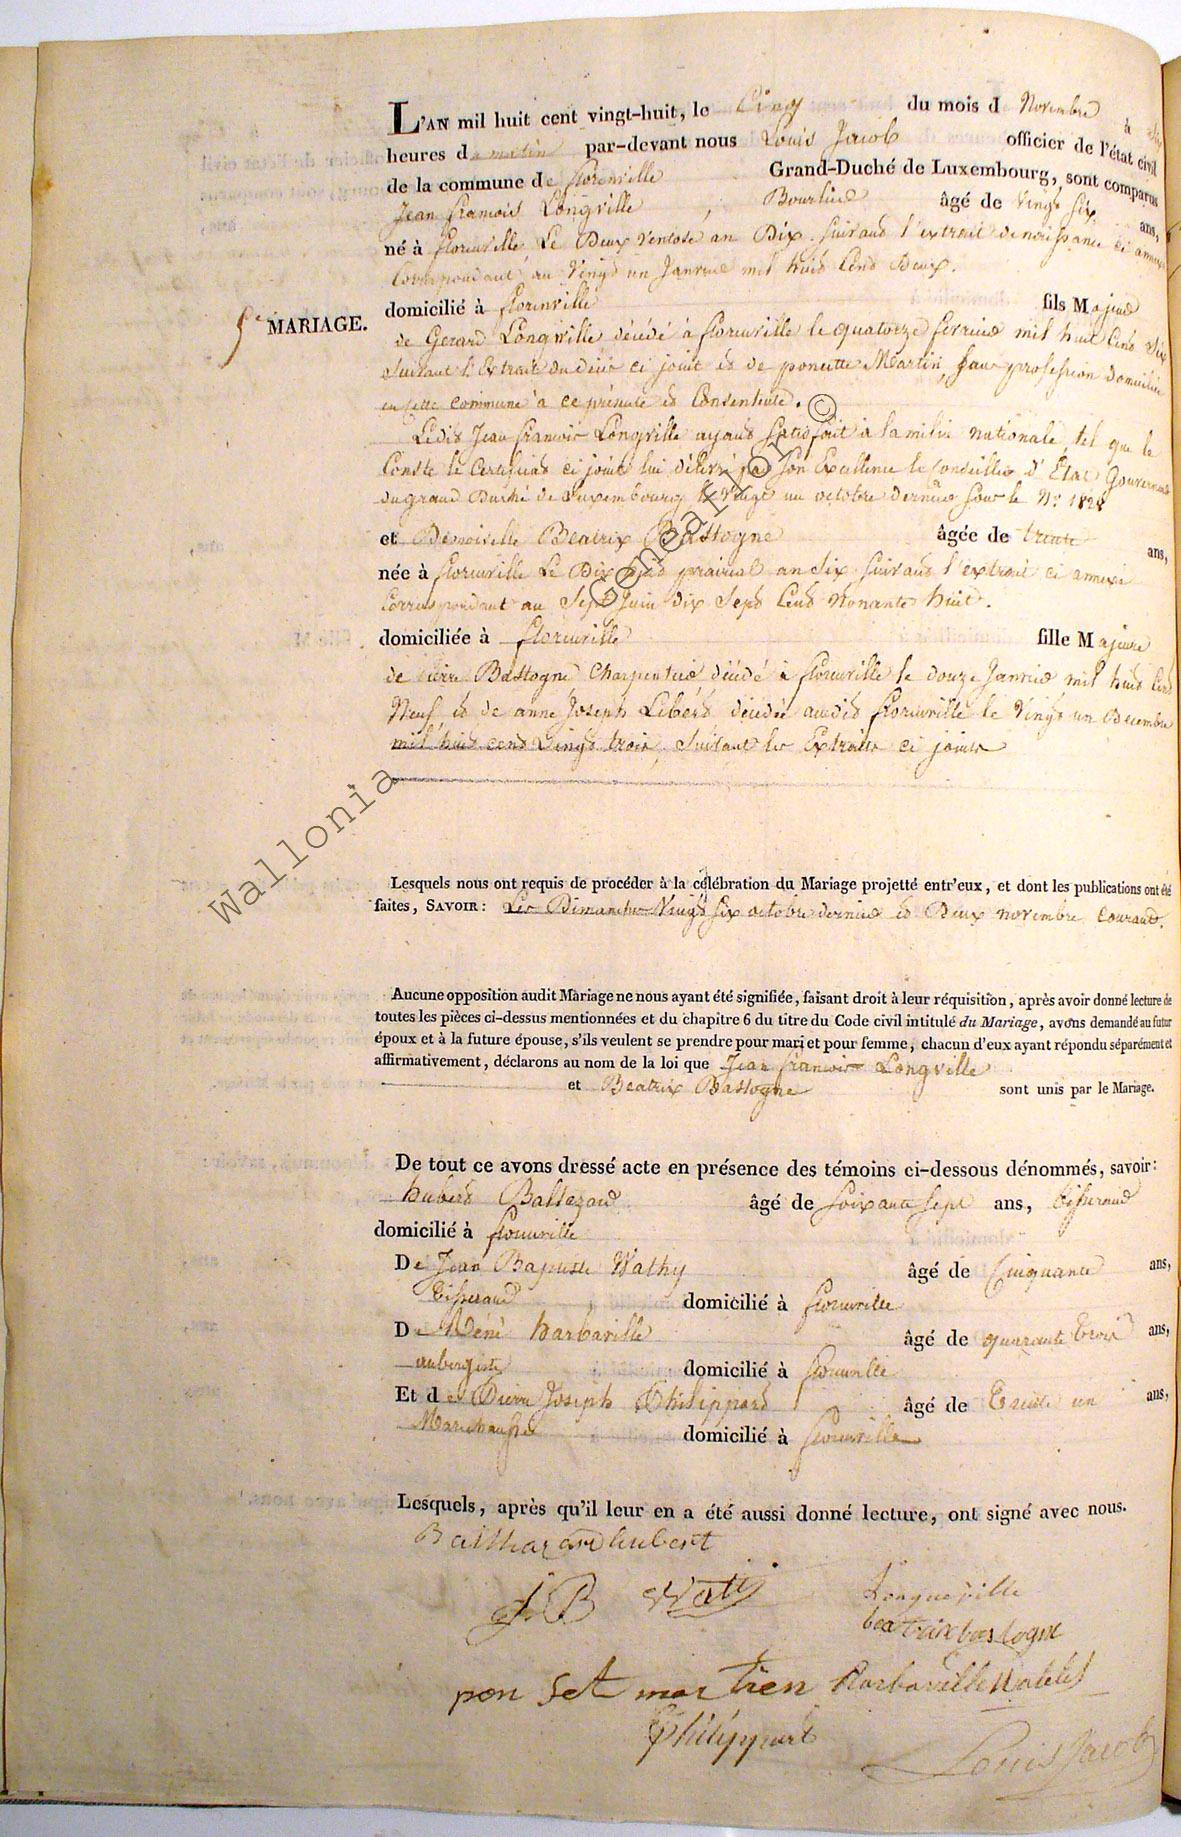 L'AN mil huit cent vingt-huit, le Cinq du mois d Novembre à
heures d u matin par-devant nous Louis Jacob officier de l'état civil
de la commune de florenville Grand-Duché de Luxembourg, sont comparus
Jean francois Longville, âgé de vingt six ans,
né à florenville Le Deux ventose an Dix suivant l'extrait de naissance ci annexé
Correspondant au vingt un Janvier mil huit Cent Deux.
domicilié à florenville fils Majeur
5e MARIAGE.
de Gerard Longville décédé à florenville le quatorze fevrier mil huit Cent Six
suivant l'Extrait du décès ci joint et de poncette Martin, sans profession domiciliée
en cette commune à ce présente et Consentente.
Ledit Jean francois Longville ayant satisfait à la milice nationale, tel que le
Conste le Certificat ci joint lui délivré par Son Excellence le Conseiller d'Etat Gouverneur
du grand Duché de Luxembourg le vingt un octobre dernier sous le No. 1828
et Demoiselle Beatrix Bastogne âgée de trente ans,
née à florenville Le Dix neuf prairial an Six suivant l'extrait ci annexé
Correspondant au Sept Juin dix Sept Cent Nonante huit.
domiciliée à florenville fille Majeure
de Pierre Bastogne Charpentier décédé à florenville le douze Janvier mil huit Cent
Neuf et de anne Joseph Libert décédée audit florenville le Vingt un Decembre
mil huit cent Vingt trois, suivant les Extraits ci joints
Lesquels nous ont requis de procéder à la célébration du Mariage projetté entr'eux, et dont les publications ont été
faites, SAVOIR: Les Dimanches Vingt Six octobre dernier et Deux novembre Courant.
Aucune opposition audit Mariage ne nous ayant été signifiée, faisant droit à leur réquisition, après avoir donné lecture de
toutes les pièces ci-dessus mentionnées et du chapitre 6 du titre du Code civil intitulé du Mariage, avons demandé au futur
époux et à la future épouse, s'ils veulent se prendre pour mari et pour femme, chacun d'eux ayant répondu séparément et
affirmativement, déclarons au nom de la loi que Jean francois Longville
et Beatrix Bastogne sont unis par le Mariage.
De tout ce avons dressé acte en présence des témoins ci-dessous dénommés, savoir:
hubert Baltazard âgé de Soixante Sept ans, tisserand
domicilié à florenville
De Jean Baptiste Wathy âgé de Cinquante ans,
tisserand, domicilié à florenville
De Méné harbaville âgé de quarante trois ans,
aubergiste domicilié à florenville
Et de Pierre Joseph Philippard âgé de trente un ans,
Marechausé domicilié à florenville
Lesquels, après qu'il leur en a été aussi donné lecture, ont signé avec nous.
Balthazard hubert
J B Wati
Longueville
beatrix bastogne
pon set mar tien harbaville
Philippart
Louis Jacob
Wallonia Genealor ©